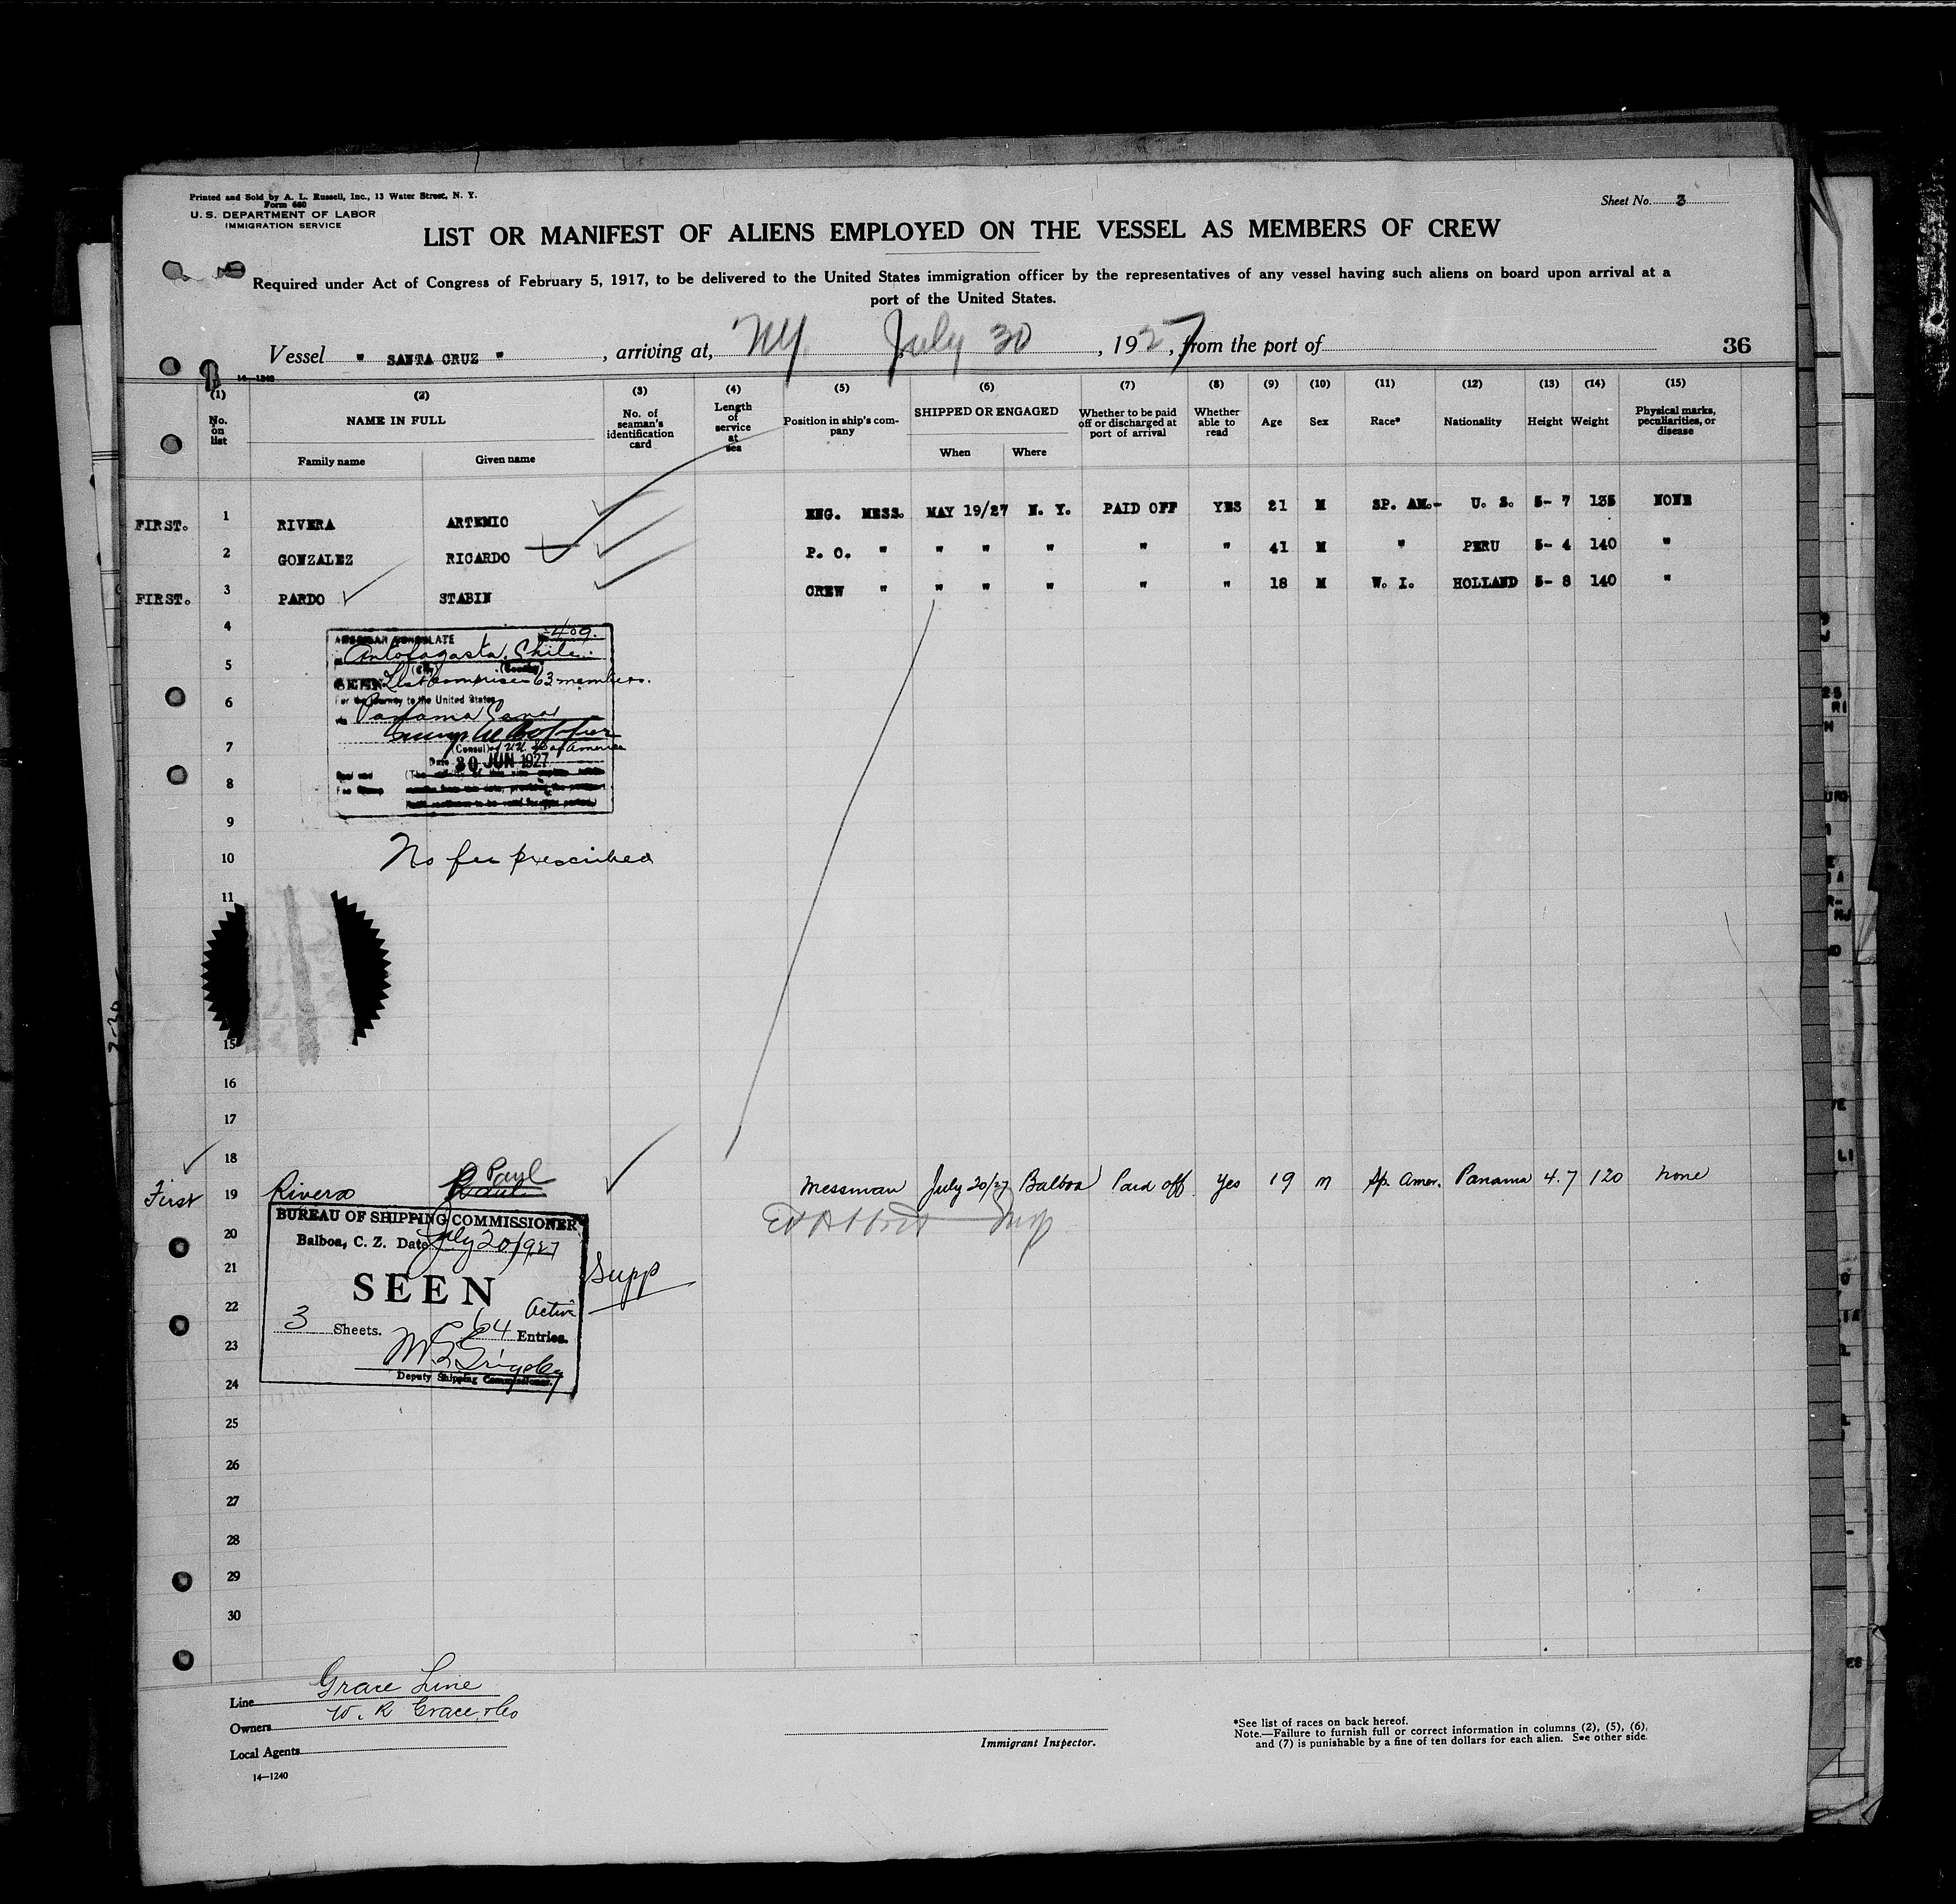 Printed and Sold by A. L. Russell, Inc., 13 Water Street, N. Y.
Form 680
U. S. DEPARTMENT OF LABOR
IMMIGRATION SERVICE
Sheet No. 3
LIST OR MANIFEST OF ALIENS EMPLOYED ON THE VESSEL AS MEMBERS OF CREW
Required under Act of Congress of February 5, 1917, to be delivered to the United States immigration officer by the representatives of any vessel having such aliens on board upon arrival at a
port of the United States.
Vessel " SANTA CRUZ ", arriving at, NY. July 30, 1927, from the port of
36
14-1240
(1) (2) (3) (4) (5) (6) (7) (8) (9) (10) (11) (12) (13) (14) (15)
No. on list
NAME IN FULL
Family name Given name
No. of seaman's identification card
Length of service at sea
Position in ship's company
SHIPPED OR ENGAGED
When Where
Whether to be paid off or discharged at port of arrival
Whether able to read
Age Sex Race* Nationality Height Weight
Physical marks, peculiarities, or disease
FIRST. 1 RIVERA ARTEMIO ENG. MESS. MAY 19/27 N. Y. PAID OFF YES 21 M SP. AM.- U. S. 5- 7 135 NONE
2 GONZALEZ RICARDO P. O. " " " " " " 41 M " PERU 5- 4 140 "
FIRST. 3 PARDO STABIN CREW " " " " " " 18 M W. I. HOLLAND 5- 8 140 "
4
5
6
7
8
9
10
11
15
16
17
18
AMERICAN CONSULATE 409.
Antofagasta, Chile.
(City) (Country)
SEEN List comprises 63 members.
For the journey to the United States
via Panama Canal
(Consul) of U.S. of America
Date 30 JUN 1927
No fee prescribed
First 19 Rivera Paul Messman July 20/27 Balboa Paid off Yes 19 m Sp. Amer. Panama 4.7 120 None
20
21
22
23
24
25
26
27
28
29
30
BUREAU OF SHIPPING COMMISSIONER
Balboa, C. Z. Date July 20/1927
SEEN
Supp
3 Sheets. 64 Active Entries.
Deputy Shipping Commissioner.
Line Grace Line
Owners W. R. Grace & Co
Local Agents
14-1240
Immigrant Inspector.
*See list of races on back hereof.
Note.—Failure to furnish full or correct information in columns (2), (5), (6),
and (7) is punishable by a fine of ten dollars for each alien. See other side.